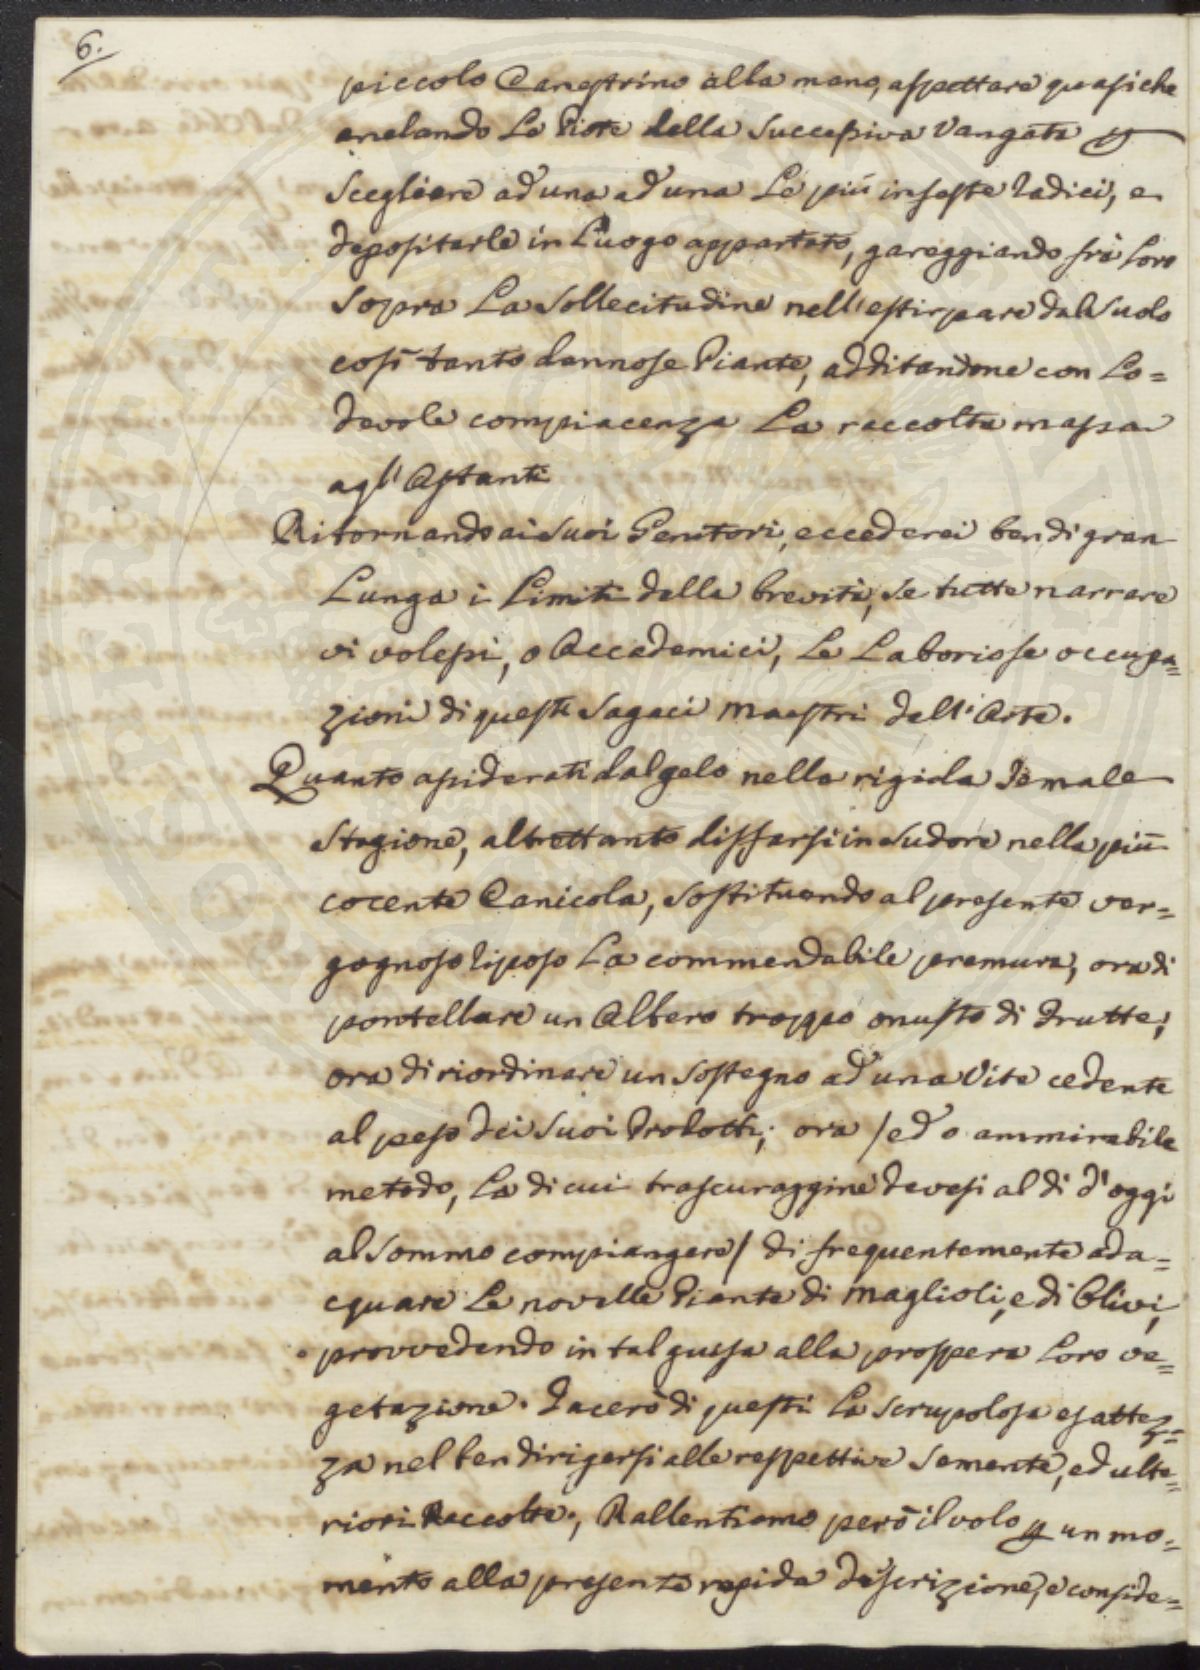 6.
piccolo Canestrino alla mano, aspettare quasiche
anelando Le Piote della Successiva Vangata p
Scegliere ad una ad una Le più infeste Radici, e
depositarle in Luogo appartato, gareggiando frà Loro
Sopra La Sollecitudine nell'estirpare dal Suolo
così tanto dannose Piante, additandone con Lo=
devole compiacenza La raccolta massa
agl'Astanti
Ritornando ai Suoi Genitori, eccederei ben di gran
Lunga i Limiti della brevità, se tutte narrare
vi volessi, o Accademici, Le Laboriose occupa=
zioni di questi Sagaci Maestri dell'Arte.
Quanto assiderati dal gelo nella rigida Jemale
Stagione, altrettanto disfarsi in Sudore nella più
cocente Canicola, sostituendo al presente ver=
gognoso Riposo La commendabile premura, ora di
pontellare un Albero troppo onusto di Frutte;
ora di riordinare un Sostegno ad una Vite cedente
al peso dei Suoi Prodotti; ora /ed o ammirabile
metodo, La di cui trascuraggine devesi al dì d'oggi
al Sommo compiangere/ di frequentemente ada=
cquare Le novelle Piante di Maglioli, e di Ulivi,
provvedendo in tal guisa alla prospera Loro ve=
getazione. Tacerò di questi La Scrupolosa esattez=
za nel ben dirigersi alle respettive Semente, ed ulte=
riori Raccolte; Rallentiamo però il volo p un mo=
mento alla presente rapida descrizione, e conside=